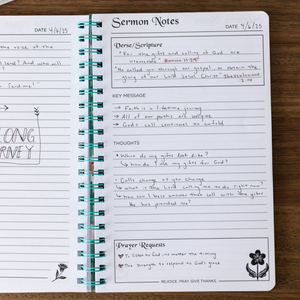 DATE 4/6/25
voice of the
send? And who will
send me!
LONG
JOURNEY
Sermon Notes
DATE 4/6/25
Verse/Scripture
"For the gifts and calling of God are
irrevocable" Romans 11:29
"He called you through our gospel, so
glory of our Lord Jesus Christ" Thessalonians
2:14
KEY MESSAGE
→ Faith is a lifetime journey
→ All of our paths are unique
→ God's call continues to unfold
THOUGHTS
• Where do my gifts
↳ how do I use my gifts for God?
• Calls change as you change
↳ what is the Lord calling me to do right now?
↳ how can I best answer this call with the gifts
He has provided me?
Prayer Requests
To listen to God no matter the
The strength to respond to God's grace
REJOICE. PRAY. GIVE THANKS.